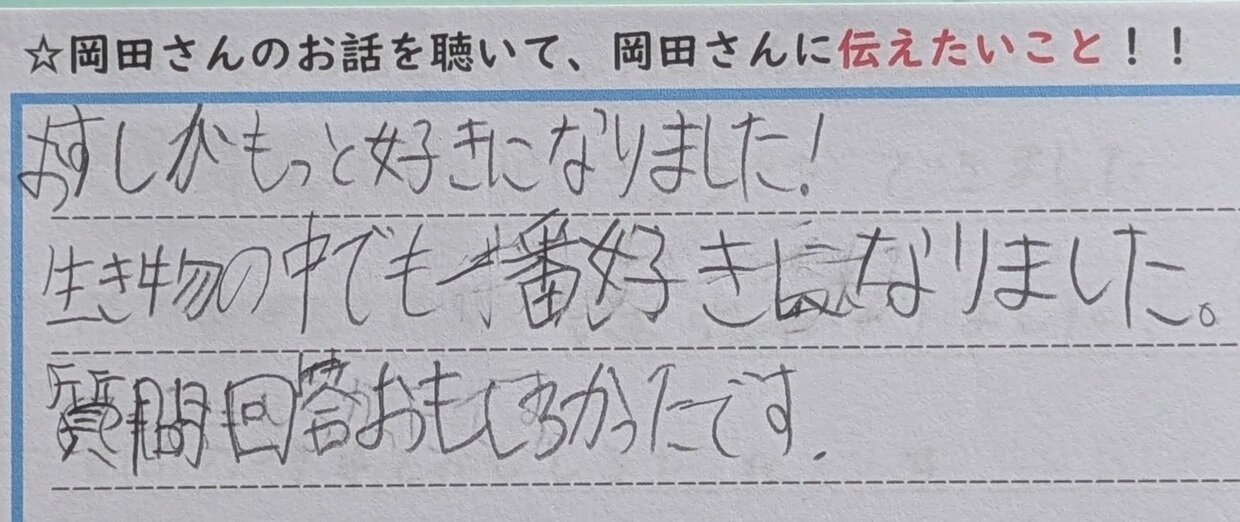 ☆岡田さんのお話を聴いて、岡田さんに伝えたいこと!!
おすしがもっと好きになりました!
生き物の中でも一番好きになりました。
質問回答おもしろかったです.